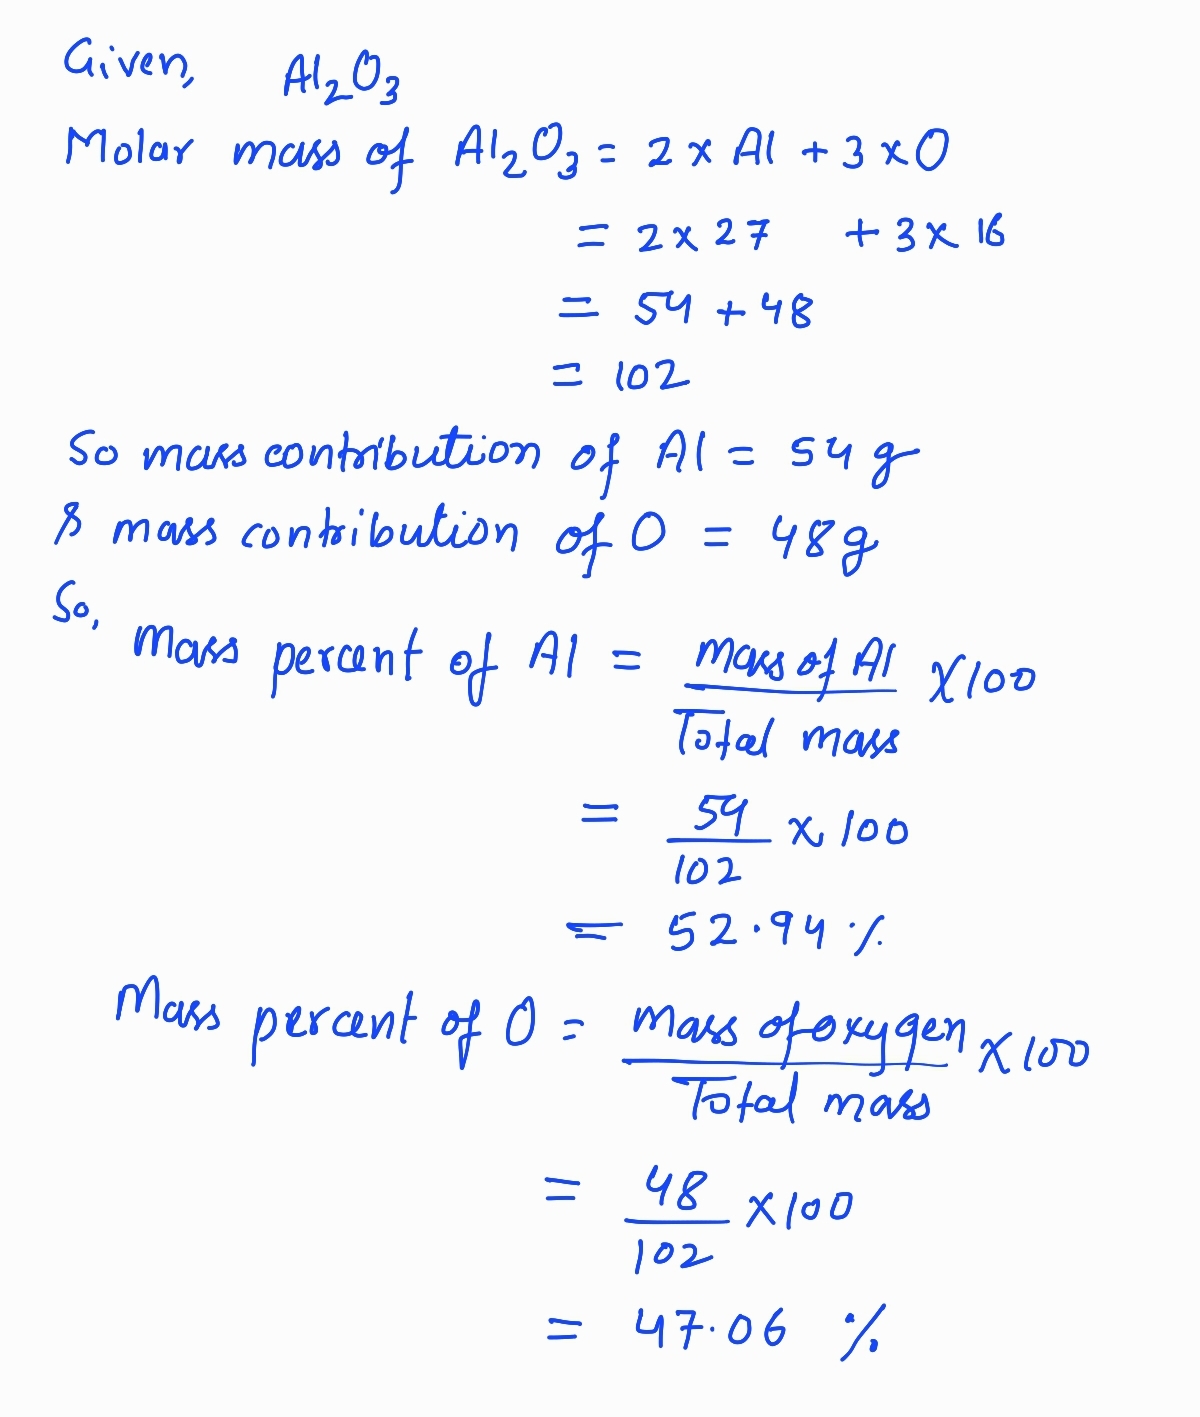 Given, Al₂O₃
Molar mass of Al₂O₃ = 2 x Al + 3 x O
= 2 x 27 + 3 x 16
= 54 + 48
= 102
So mass contribution of Al = 54 g
& mass contribution of O = 48g
So,
Mass percent of Al = mass of Al / Total mass X 100
= 54 / 102 x 100
= 52.94 %
Mass percent of O = mass of oxygen / Total mass X 100
= 48 / 102 X 100
= 47.06 %